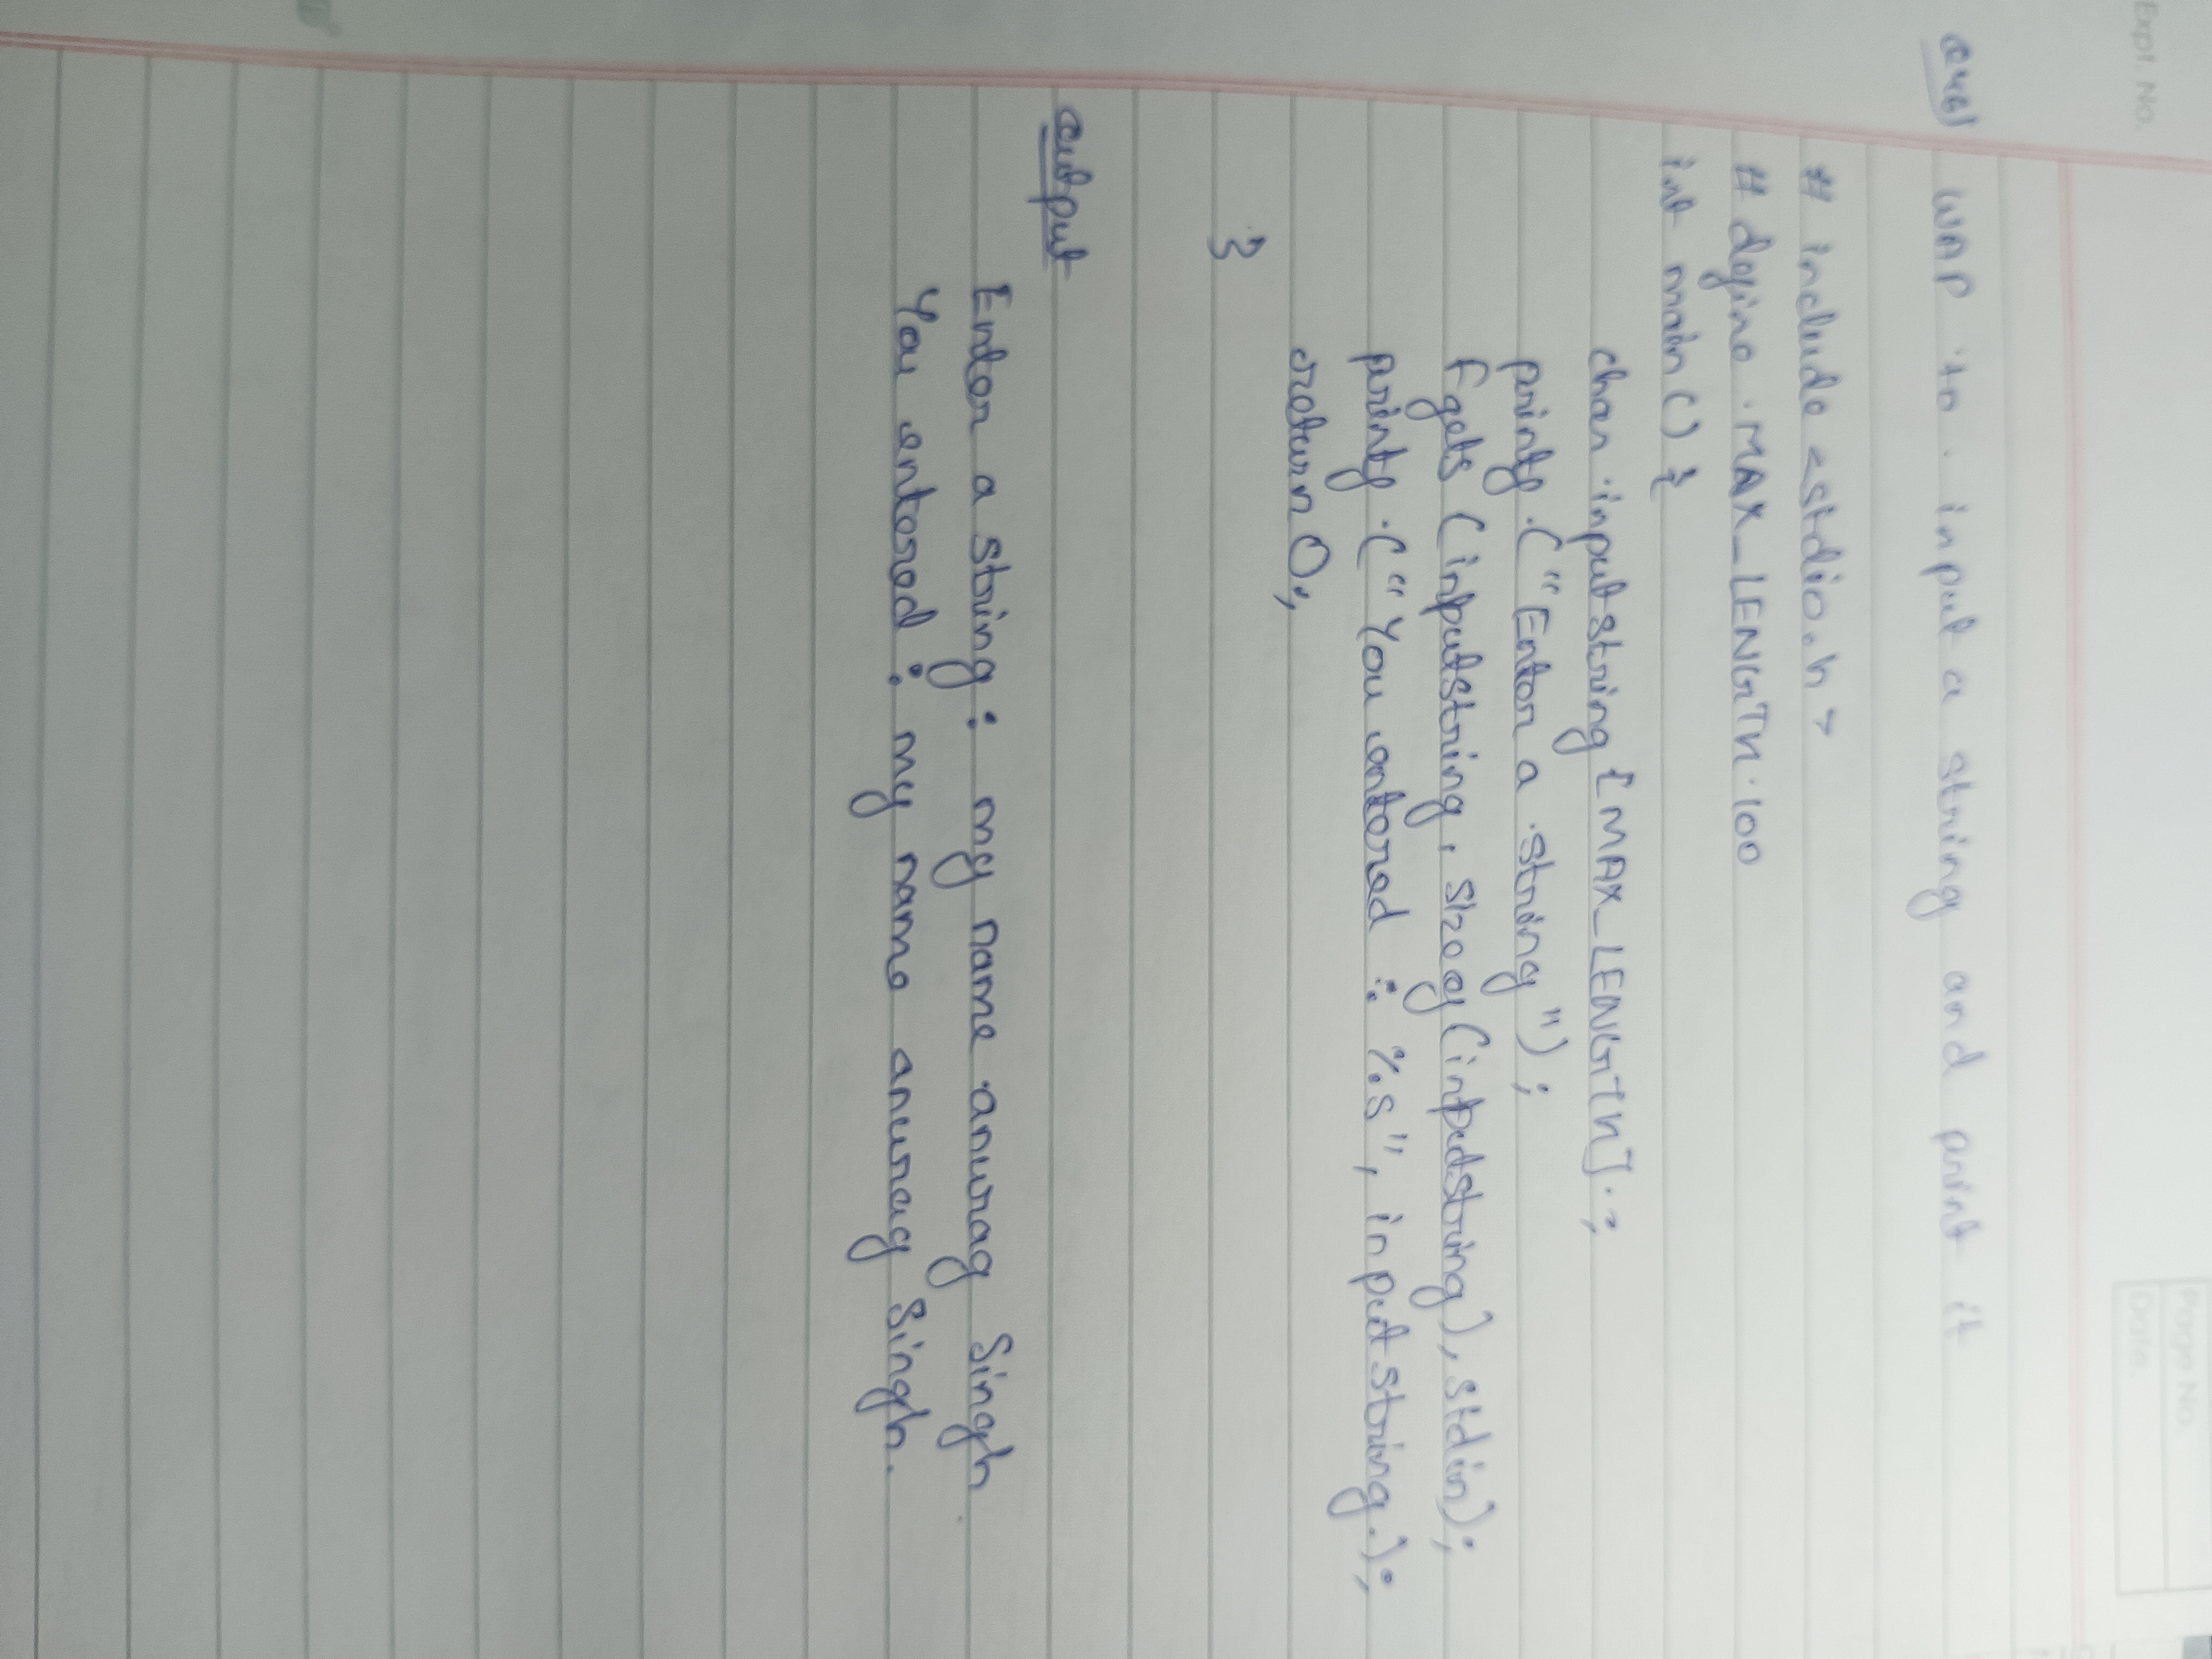 Page No.
Date.
Expt. No.
Q46) WAP to input a string and print it
# include <stdio.h>
# define MAX_LENGTH 100
int main() {
char inputstring [MAX_LENGTH];
printf ("Enter a string");
fgets (inputstring, sizeof (inputstring), stdin);
printf ("You entered : %s", inputstring);
return 0;
}
output
Enter a string : my name anurag Singh.
You entered : my name anurag Singh.